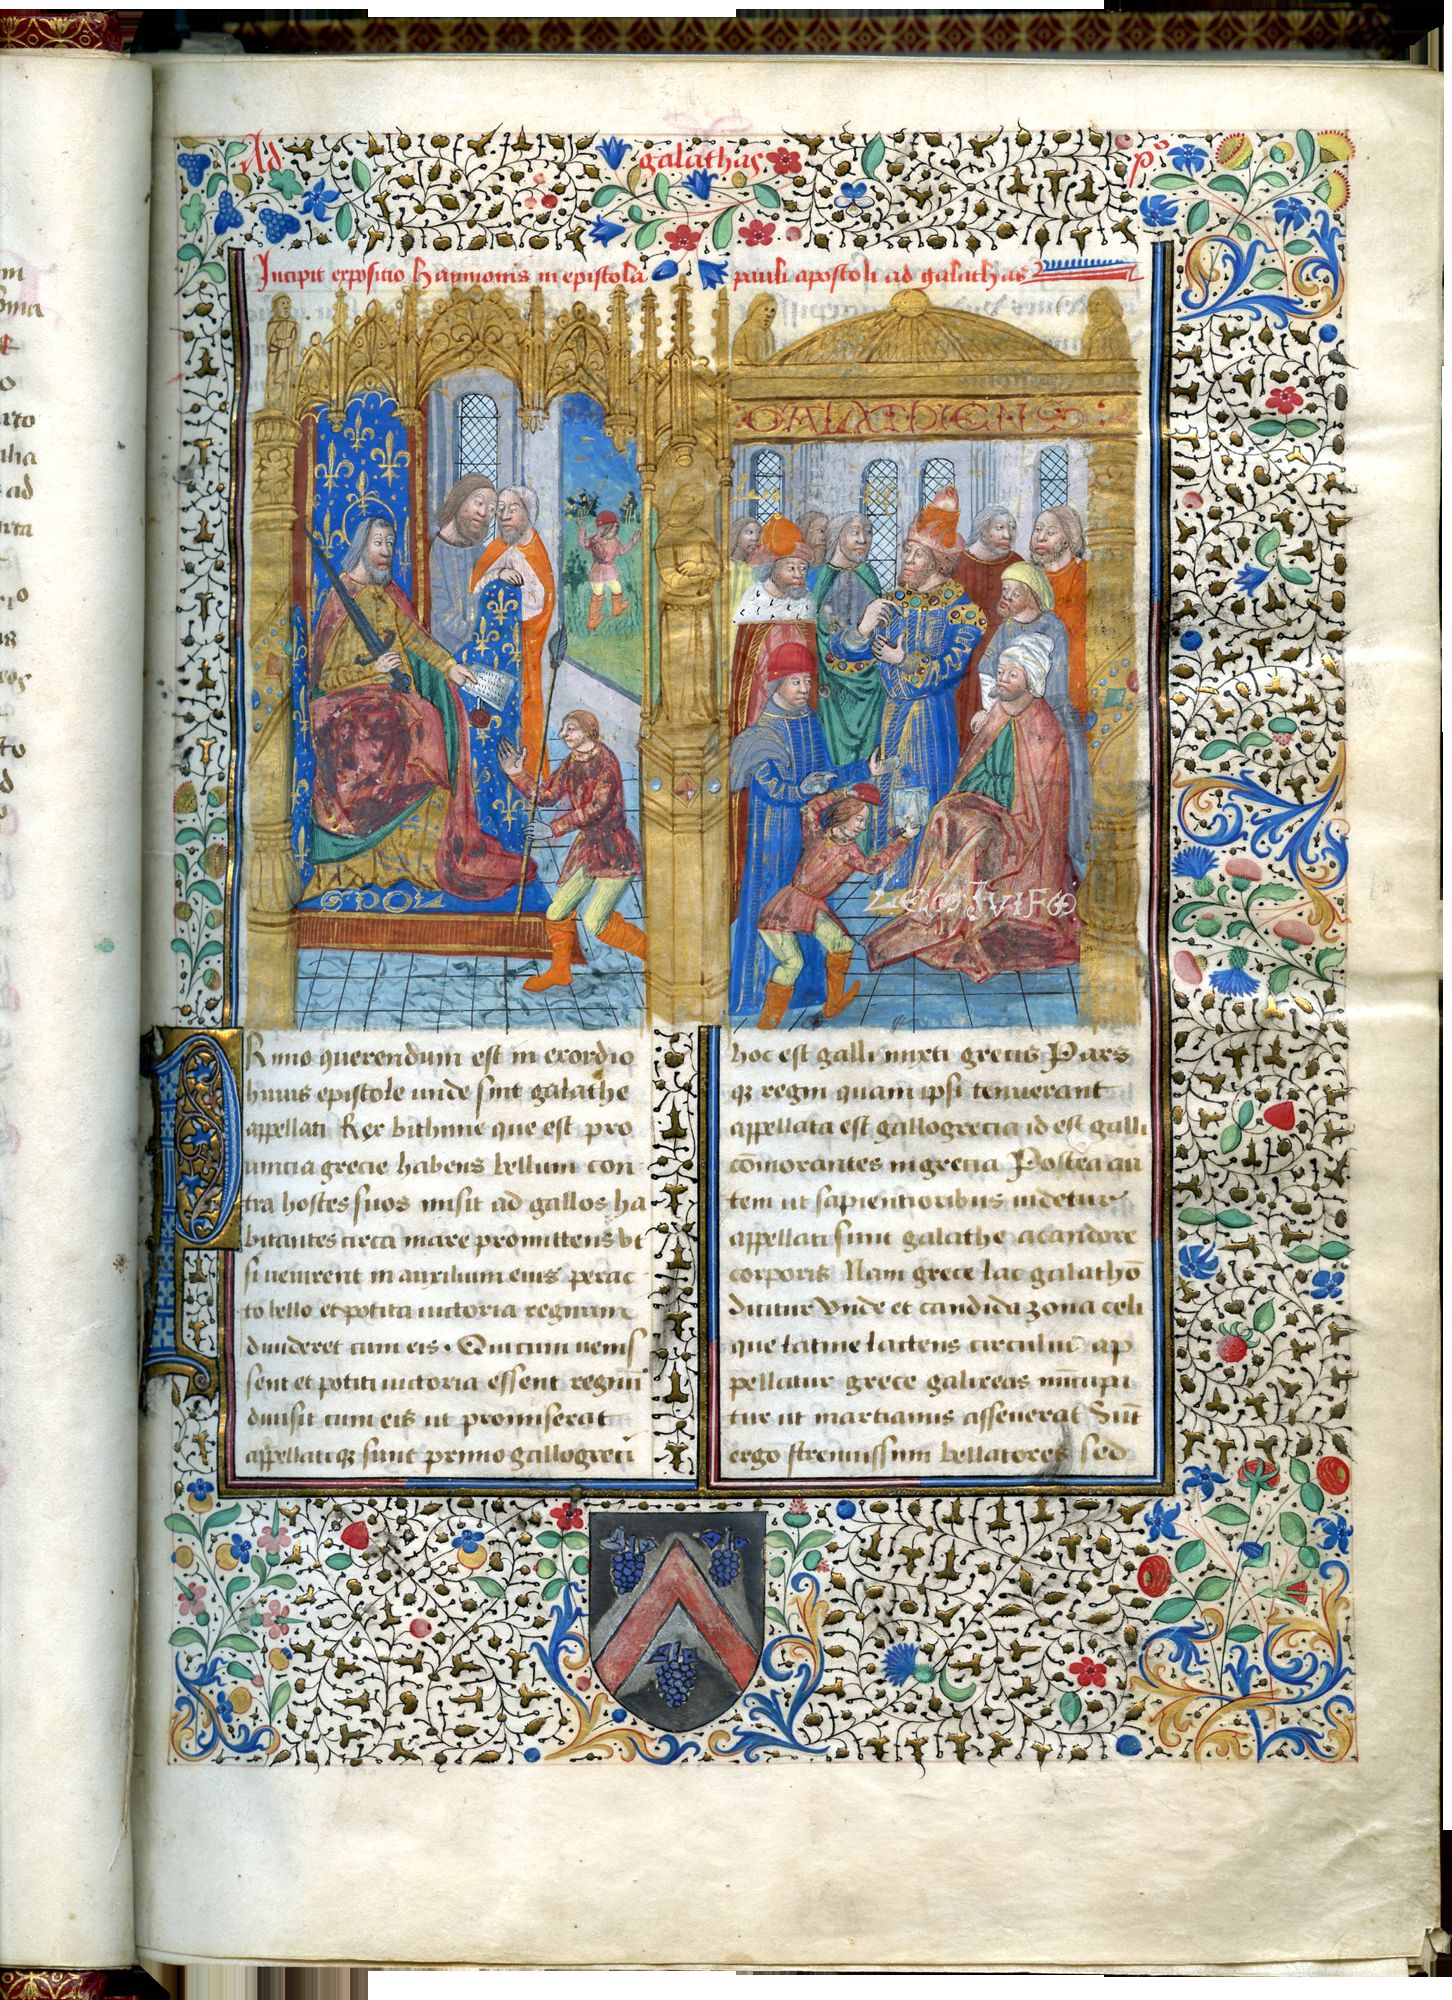 Ad galathas pº
Incipit expositio haymonis in epistolā pauli apostoli ad galathas
GALATHIENS
SPOL
LES JVIFS
Primo querendum est in exordio
huius epistole unde sint galathe
appellati Rex bithinie que est pro
uincia grecie habens bellum con
tra hostes suos misit ad gallos ha
bitantes circa mare promittens ut
si uenirent in auxilium eius perac
to bello et potita uictoria regnum
diuideret cum eis. Qui cum uenis
sent et potiti uictoria essent regnū
diuisit cum eis ut promiserat
appellatiq; sunt primo gallogreci
hoc est galli mixti grecis Pars
q; regni quam ipsi tenuerant
appellata est gallogrecia id est galli
cōmorantes in grecia Postea au
tem ut sapientioribus uidetur
appellati sunt galathe a candore
corporis Nam grece lac galathō
dicitur Unde et candida zona celi
que latine lacteus circulus ap
pellatur grece galixeas nūcupa
tur ut martianus asseuerat Sūt
ergo strenuissimi bellatores sed